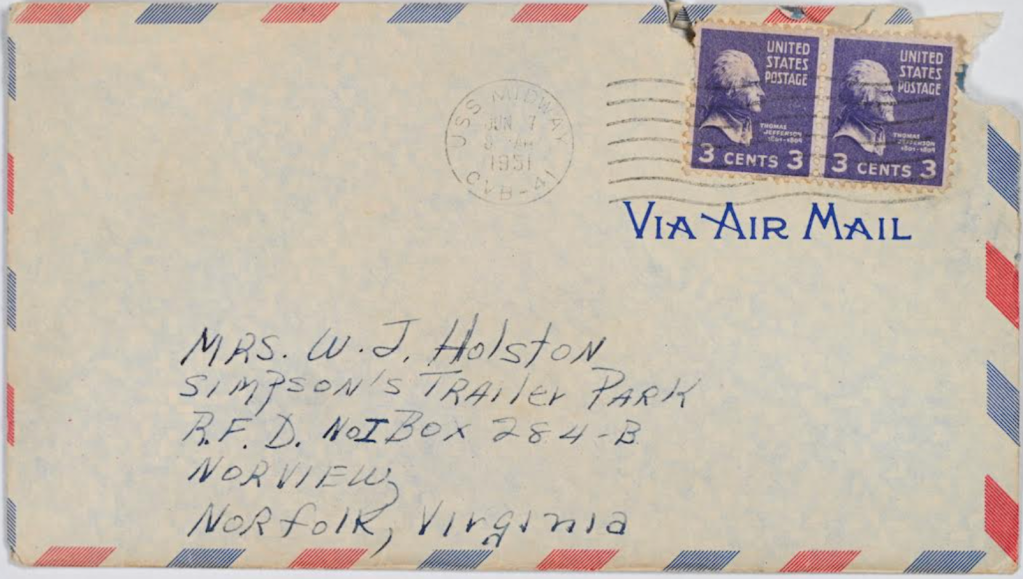 USS MIDWAY
JUN 7
AM
1951
CVB-41
UNITED STATES POSTAGE
THOMAS JEFFERSON
1801-1809
3 CENTS 3
UNITED STATES POSTAGE
THOMAS JEFFERSON
1801-1809
3 CENTS 3
VIA AIR MAIL
MRS. W. J. HolstoN
SIMPSON'S TRAIler PARK
R.F.D. No I Box 284-B
NORVIEW,
NORfolK, VirginIa